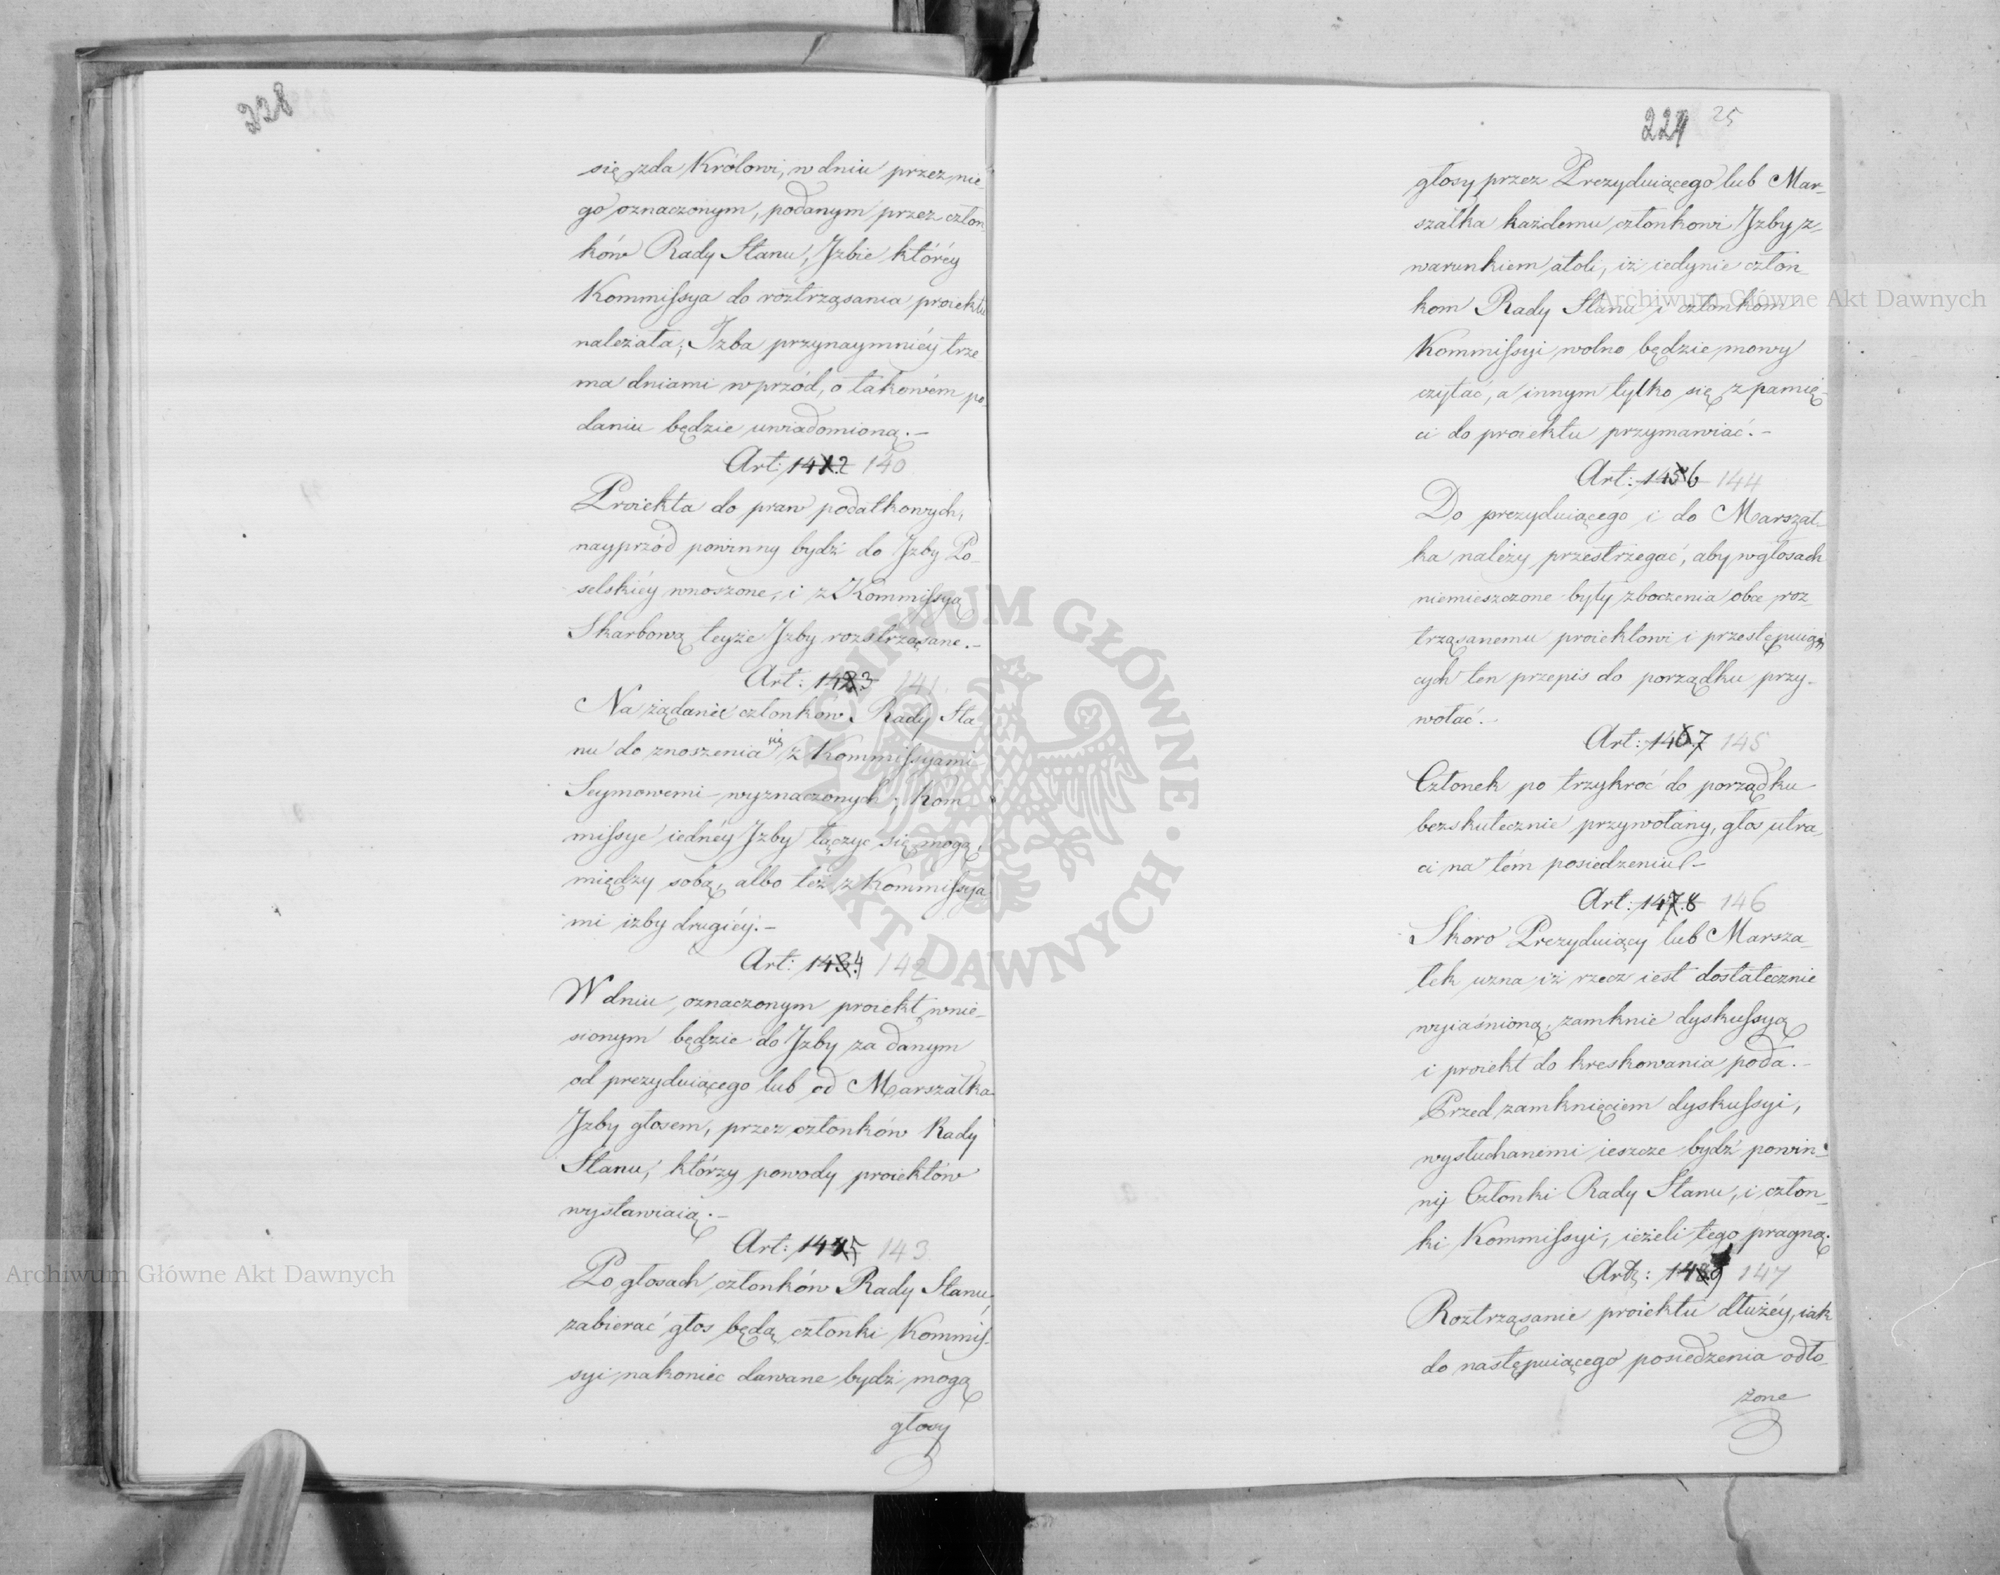 228
się zda Królowi, w dniu przez nie-
go oznaczonym, podanym przez człon
ków Rady Stanu, Jzbie któréy
Kommissya do roztrząsania proiektu
należała; Izba przynaymniéy trze
ma dniami wprzód, o takowém po-
daniu będzie uwiadomioną.-
Art: 140
Proiekta do praw podatkowych,
nayprzód powinny bydź do Jzby Po-
selskiéy wnoszone, i z Kommissyą
Skarbową teyże Jzby roztrząsane.-
Art: 1423 141
Na żądanie członkow Rady Sta
nu do znoszenia się z Kommissyami
Seymowemi wyznaczonych; Kom
missye iednéy Jzby łączyc się mogą,
między sobą, albo też z Kommissya
mi izby drugiéy.-
Art: 1434 142
W dniu oznaczonym proiekt wnie-
sionym będzie do Jzby za danym
od prezyduiącego lub od Marszałka
Jzby głosem, przez członków Rady
Stanu, którzy powody proiektów
wystawiaią.-
Art: 1445 143
Po głosach członków Rady Stanu,
zabierać głos będą członki Kommis-
syi nakoniec dawane bydź mogą
głosy
229 25
głosy przez Prezyduiącego lub Mar-
szałka każdemu członkowi Jzby z-
warunkiem atoli, iż iedynie człon-
kom Rady Stanu i członkom
Kommissyi wolno będzie mowy
czytać, a innym tylko się z pamię-
ci do proiektu przymawiać.-
Art: 1456 144
Do prezyduiącego i do Marszał-
ka należy przestrzegać, aby w głosach
niemieszczone były zboczenia obce roz-
trząsanemu proiektowi i przestępuią
cych ten przepis do porządku przy-
wołać.-
Art: 1467 145
Członek po trzykroć do porządku
bezskutecznie przywołany, głos utra-
ci na tém posiedzeniu.-
Art: 1478 146
Skoro Prezyduiący lub Marsza-
łek uzna iż rzecz iest dostatecznie
wyiaśnioną, zamknie dyskussyą
i proiekt do kreskowania poda.-
Przed zamknięciem dyskussyi,
wysłuchanemi ieszcze bydź powin-
ny Członki Rady Stanu, i człon-
ki Kommissyi, ieżeli tego pragną.
Art: 1489 147
Roztrząsanie proiektu dłużéy, iak
do następuiącego posiedzenia odło-
żone
Archiwum Główne Akt Dawnych
Archiwum Główne Akt Dawnych
ARCHIWUM GŁÓWNE · AKT DAWNYCH ·